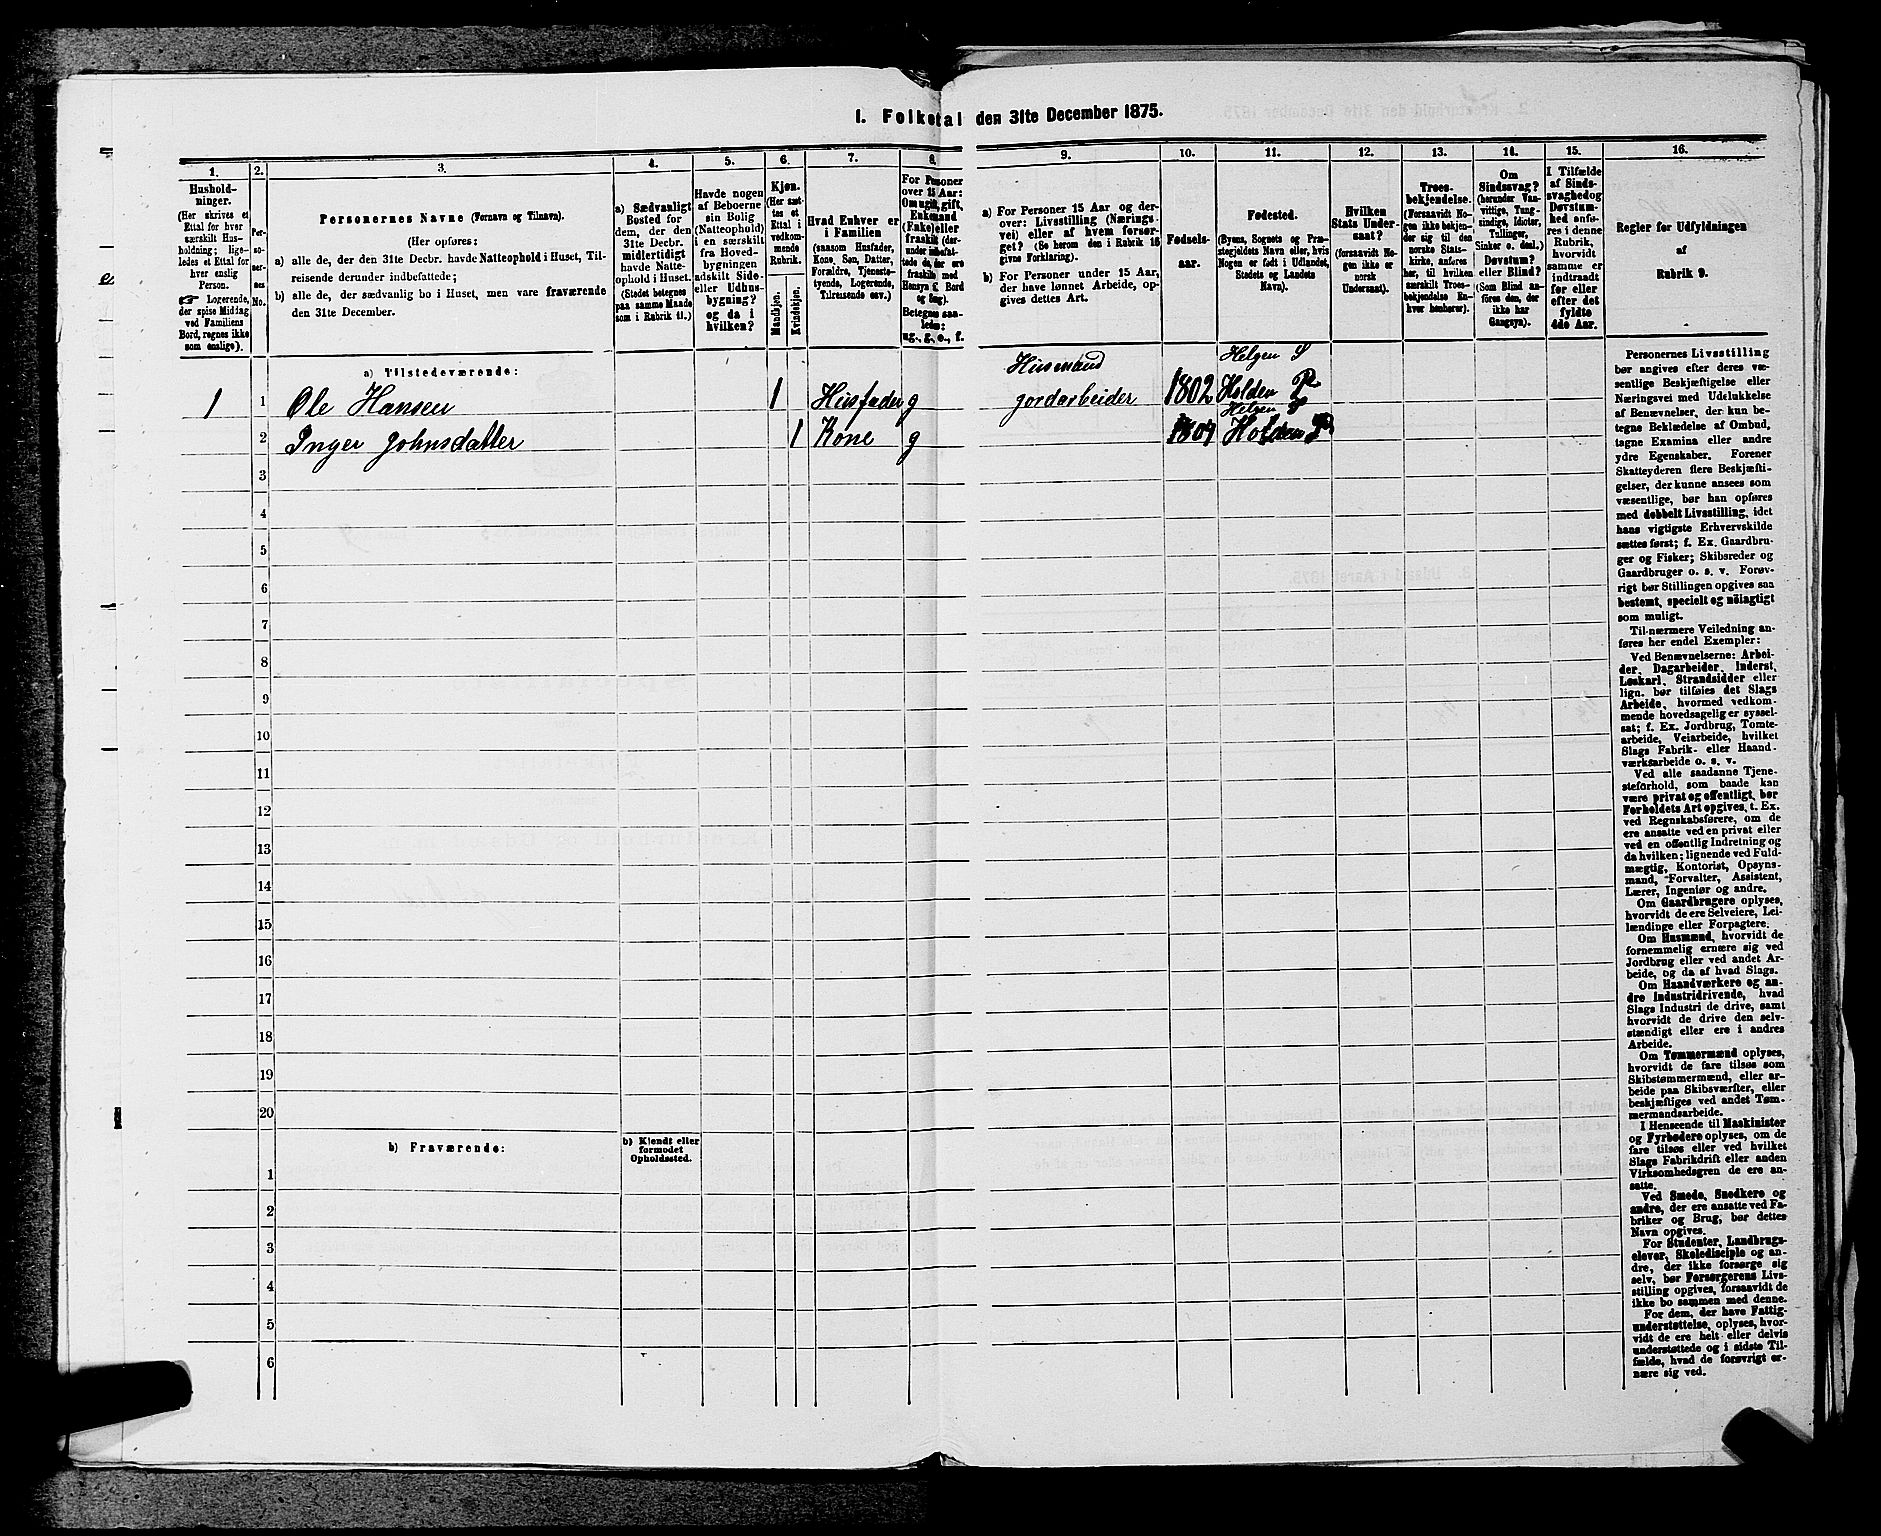 1. Folketal den 31te December 1875.
1.
2.
3.
4.
5.
6.
7.
8.
9.
10.
11.
12.
13.
14.
15.
16.
Hushold-
ninger.
(Her skrives et
Ettal for hver
særskilt Hus-
holdning; lige-
ledes et Ettal for
hver enslig
Person.
☞ Logerende,
der spise Middag
ved Familiens
Bord, regnes ikke
som enslige).
Per-
so-
ner-
nes
No.
Personernes Navne (Fornavn og Tilnavn).
(Her opføres:
a) alle de, der den 31te Decbr. havde Natteophold i Huset, Til-
reisende derunder indbefattede;
b) alle de, der sædvanlig bo i Huset, men vare fraværende
den 31te December.
a) Sædvanligt
Bosted for
dem, der den
31te Decbr.
midlertidigt
havde Natte-
ophold i Huset.
(Stedet betegnes
paa samme Maade
som i Rubrik 11.)
Havde nogen
af Beboerne
sin Bolig
(Natteophold)
i en særskilt
fra Hoved-
bygningen
adskilt Side-
eller Udhus-
bygning?
og da i
hvilken?
Kjøn.
(Her sæt-
tes et
Ettal i
vedkom-
mende
Rubrik.
Mandkjøn.
Kvindekjøn.
Hvad Enhver er
i Familien
(saasom Husfader,
Kone, Søn, Datter,
Forældre, Tjeneste-
tyende, Logerende,
Tilreisende osv.)
For Personer
over 15 Aar:
Om ugift, gift,
Enkemand
(Enke) eller
fraskilt (der-
under indbefat-
tede de, der ere
fraskilte med
Hensyn t. Bord
og Seng).
Betegnes saa-
ledes:
ug., g., e., f.
a) For Personer 15 Aar og der-
over: Livsstilling (Nærings-
vei) eller af hvem forsør-
get? (Se herom den i Rubrik 16
givne Forklaring).
b) For Personer under 15 Aar,
der have lønnet Arbeide, op-
gives dettes Art.
Fødsels-
aar.
Fødested.
(Byens, Sognets og Præ-
stegjeldets Navn eller, hvis
Nogen er født i Udlandet,
Stedets og Landets
Navn).
Hvilken
Stats Under-
saat?
(forsaavidt No-
gen ikke er
norsk
Undersaat).
Troes-
bekjendelse.
(Forsaavidt No-
gen ikke bekjen-
der sig til den
norske Stats-
kirke, anføres
her, til hvilken
særskilt Troes-
bekjendelse En-
hver henhører).
Om
Sindssvag?
(herunder Van-
vittige, Tung-
sindige, Idioter,
Tullinger,
Sinker o. desl.)
Døvstum?
eller Blind?
(Som Blind an-
føres den, der
ikke har
Gangsyn).
I Tilfælde
af Sinds-
svaghed og
Døvstum-
hed anfø-
res i denne
Rubrik,
hvorvidt
samme er
indtraadt
før eller
efter det
fyldte
4de Aar.
Regler for Udfyldningen
af
Rubrik 9.
a) Tilstedeværende:
Husmand
Helgen S
1 1 Ole Hansen 1 Husfader g jordarbeider 1802 Holden P
Helgen S
2 Inger Johnsdatter 1 Kone g Holden P
3
4
5
6
7
8
9
10
11
12
13
14
15
16
17
18
19
20
b) Fraværende:
b) Kjendt eller
formodet
Opholdssted.
1
2
3
4
5
6
Personernes Livsstilling
bør angives efter deres væ-
sentlige Beskjæftigelse eller
Næringsvei med Udelukkelse
af Benævnelser, der kun be-
tegne Beklædelse af Ombud,
tagne Examina eller andre
ydre Egenskaber. Forener
Skatteyderen flere Beskjæfti-
gelser, der kunne ansees som
væsentlige, bør han opføres
med dobbelt Livsstilling, idet
hans vigtigste Erhvervskilde
sættes først; f. Ex. Gaardbru-
ger og Fisker; Skibsreder og
Gaardbruger o. s. v. Forøv-
rigt bør Stillingen opgives saa
bestemt, specielt og nøiagtigt
som muligt.
Til nærmere Veiledning an-
føres her endel Exempler:
Ved Benævnelserne: Arbei-
der, Dagarbeider, Inderst,
Løskarl, Strandsidder eller
lign. bør tilføies det Slags
Arbeide, hvormed vedkom-
mende hovedsagelig er syssel-
sat; f. Ex. Jordbrug, Tomte-
arbeide, Veiarbeide, hvilket
Slags Fabrik- eller Haand-
værksarbeide o. s. v.
Ved alle saadanne Tjene-
steforhold, som baade kan
være privat og offentligt, bør
Forholdets Art opgives, t. Ex.
ved Regnskabsførere, om de
ere ansatte ved en privat eller
ved en offentlig Indretning og
da hvilken; lignende ved Fuld-
mægtig, Kontorist, Opsyns-
mand, Forvalter, Assistent,
Lærer, Ingeniør og andre.
Om Gaardbrugere oplyses,
hvorvidt de ere Selveiere, Lei-
lændinge eller Forpagtere.
Om Husmænd, hvorvidt de
fornemmelig ernære sig ved
Jordbrug eller ved andet Ar-
beide, og da af hvad Slags.
Om Haandværkere og an-
dre Industridrivende, hvad
Slags Industri de drive, samt
hvorvidt de drive den selv-
stændigt eller ere i andres
Arbeide.
Om Tømmermænd oplyses,
hvorvidt de fare tilsøs som
Skibstømmermænd, eller ar-
beide paa Skibsværfter, eller
beskjæftiges ved andet Tøm-
mermandsarbeide.
I Henseende til Maskinister
og Fyrbødere oplyses, om de
fare tilsøs eller ved hvilket
Slags Fabrikdrift eller anden
Virksomhedsgren de ere an-
satte.
Ved Smede, Snedkere og
andre, der ere ansatte ved Fa-
briker og Brug, bør dettes
Navn opgives.
For Studenter, Landbrugs-
elever, Skoledisciple og an-
dre, der ikke forsørge sig
selv, bør Forsørgerens Livs-
stilling opgives, forsaavidt de
ikke bo sammen med denne.
For dem, der have Fattig-
understøttelse, oplyses, hvor-
vidt de ere helt eller delvis
understøttede og i sidste Til-
fælde, hvad de forøvrigt er-
nære sig ved.